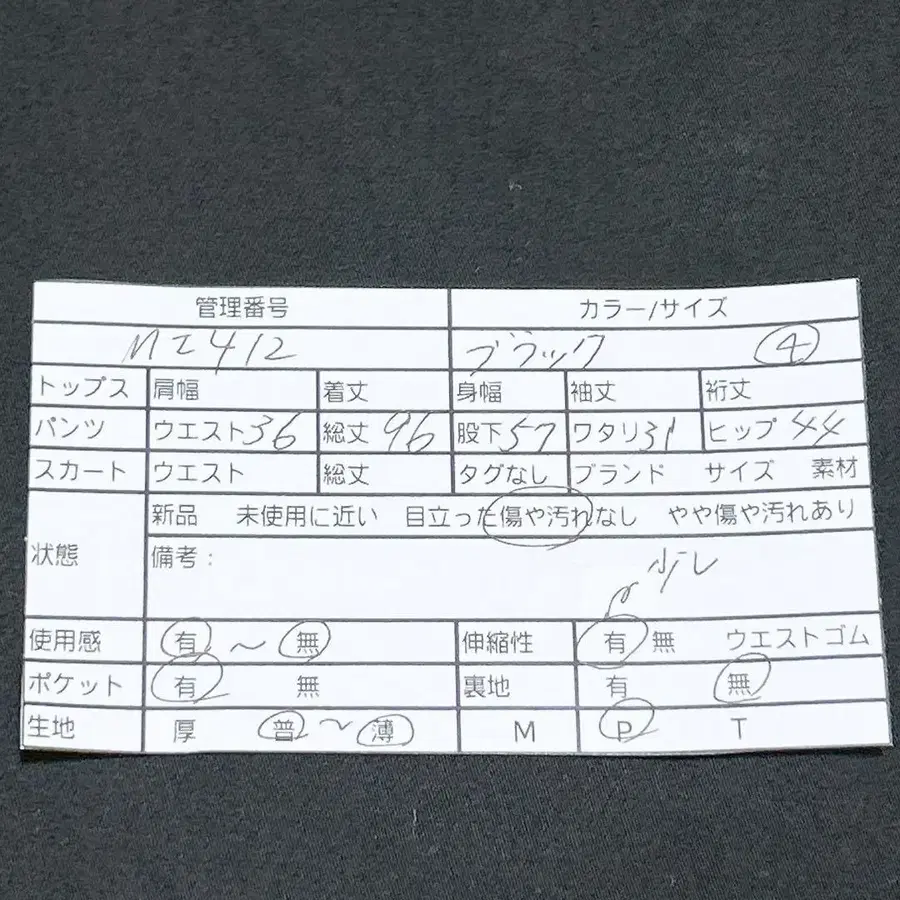 管理番号 カラー/サイズ
MI412 ブラック 4
トップス 肩幅 着丈 身幅 袖丈 裄丈
パンツ ウエスト36 総丈 96 股下57 ワタリ31 ヒップ 44
スカート ウエスト 総丈 タグなし ブランド サイズ 素材
新品 未使用に近い 目立った傷や汚れなし やや傷や汚れあり
状態 備考: 少し
使用感 有 〜 無 伸縮性 有 無 ウエストゴム
ポケット 有 無 裏地 有 無
生地 厚 普〜薄 M P T